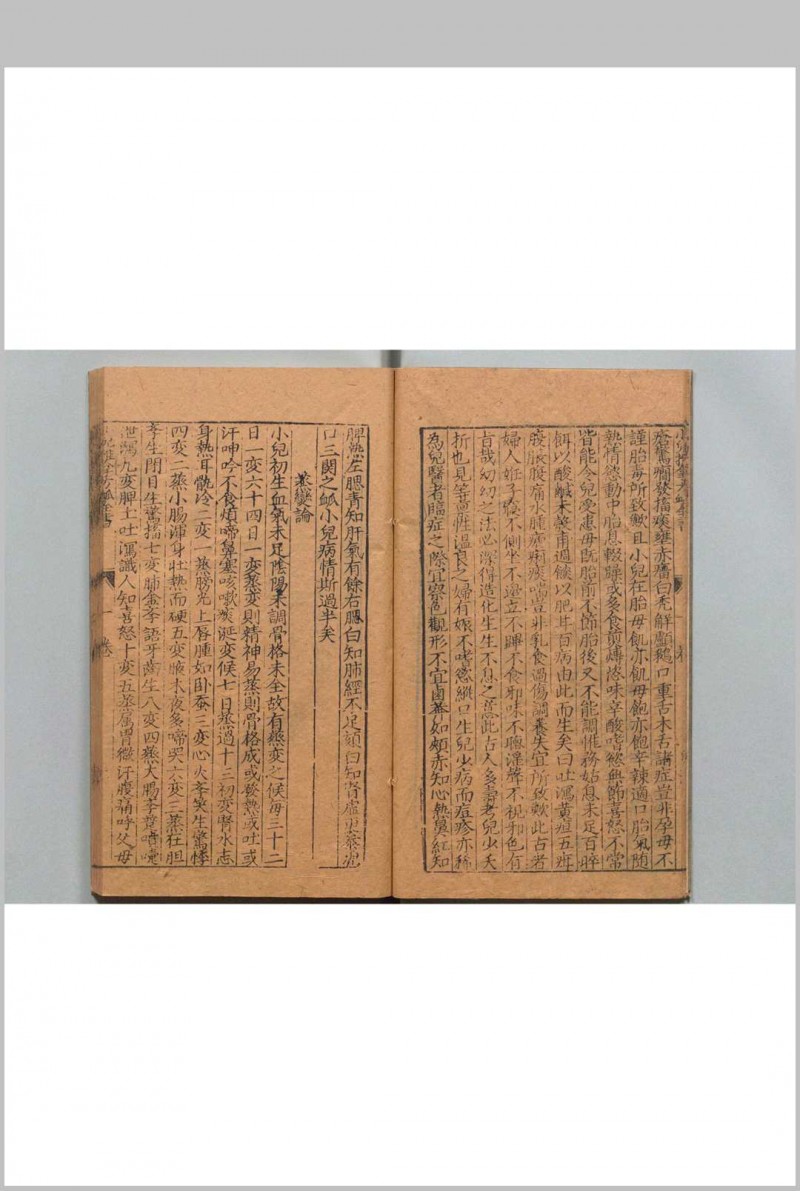 瘡驚癇發搐痰壅赤瘤白禿解顱鵝口重舌木舌諸症豈非孕母不
謹胎毒所致歟且小兒在胎母飢亦飢母飽亦飽辛辣適口胎氣隨
熱情慾動中胎息輒躁或多食煎煿恣味辛酸嗜慾無節喜怒不常
皆能令兒受患母既胎前不節胎後又不能調惟務姑息未足百晬
餌以酸鹹未幾周過餧以肥甘百病由此而生矣曰吐瀉黃疸五疳
腹脹腹痛水腫瘧痢痰喘豈非乳食過傷調養失宜所致歟此古者
婦人妊子寢不側坐不邊立不蹕不食邪味不聽淫聲不視邪色有
旨哉幼幼之法必深得造化生生不息之意此古人多壽考兒少夭
折也見等賣性溫良之婦有娠不嗜慾縱口生兒少病而痘疹亦稀
為兒醫者臨症之際宜察色觀形不宜鹵莽如頰赤知心熱鼻紅知
脾熱左腮青知肝氣有餘右腮白知肺經不足頦白知腎虛更察虎
口三関之脉小兒病情斯過半矣
蒸變論
小兒初生血氣未足陰陽未調骨格未全故有蒸変之候每三十二
日一変六十四日一変蒸変則精神易蒸則骨格成或發熱或吐或
汗呻吟不食煩啼鼻塞咳嗽痰涎変候七日蒸過十三初変腎水志
身熱耳骩冷二変一蒸膀光上唇腫如卧蚕三変心火孝笑生驚悸
四変二蒸小腸渾身壮熱而硬五変肝木夜多啼哭六変三蒸在胆
孝生閉目生驚搐七変肺金孝語牙齒生八変四蒸大腸孝
泄瀉九変脾土吐瀉識人知喜怒十変五蒸属胃微汗腹痛呼父母